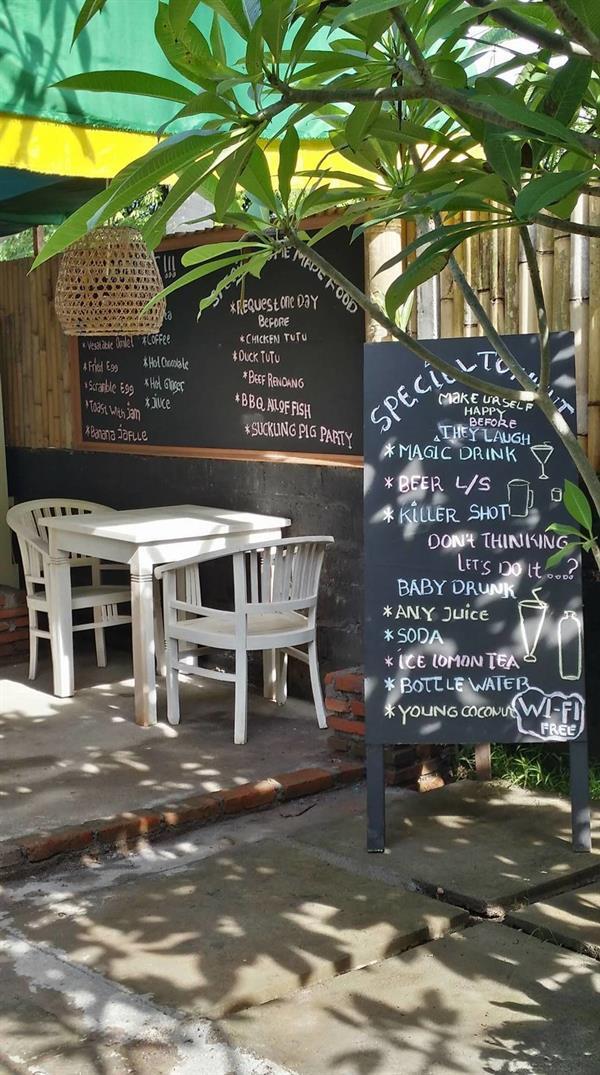 T !!!
*Vegetable Omlet
*Fried Egg
*Scramble Egg
*Toast With jam
*Banana Jaffle
*Coffee
*Hot Chocolate
*Hot Ginger
*Juice
MADE FOOD
*REQUEST ONE DAY
BEFORE
*CHICKEN TUTU
*DUCK TUTU
*BEEF RENDANG
*BBQ ALL OF FISH
*SUCKLING PIG PARTY
SPECIIL TO
NT
MAKE URSELF
HAPPY
BEFORE
THEY LAUGH
*MAGIC DRINK
*BEER L/S
*KILLER SHOT
DON'T THINKING
LET'S DO IT....?
BABY DRUNK
*ANY JUICE
*SODA
*ICE LOMON TEA
*BOTTLE WATER
*YOUNG COCONUT
WI-FI
FREE